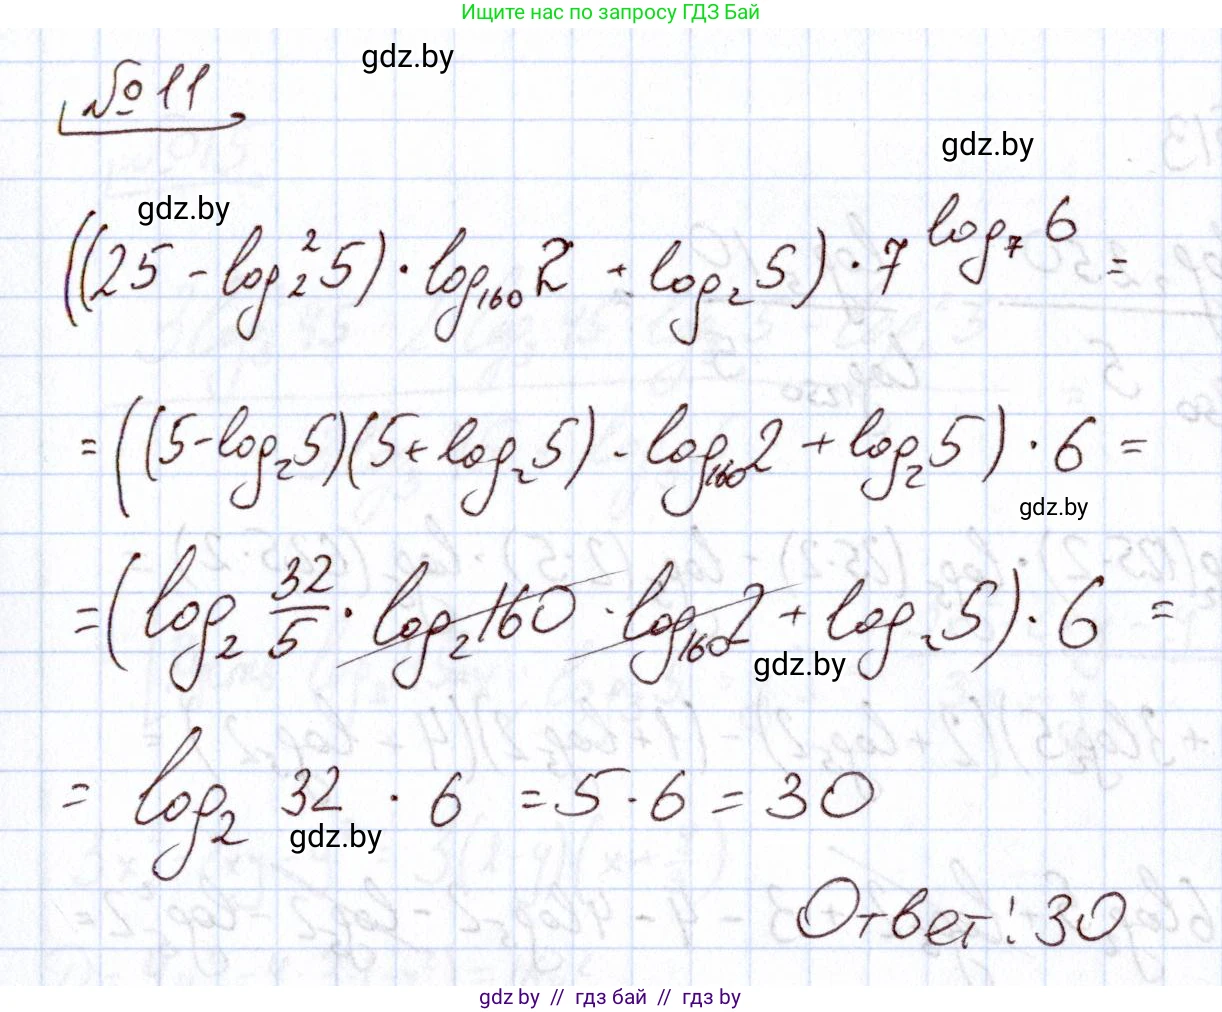 Ищите нас по запросу ГДЗ Бай
gdz.by
№11
gdz.by
gdz.by
((25 - log₂²5) · log₁₆₀2 + log₂5) · 7^(log₇6) =
= ((5 - log₂5)(5 + log₂5) · log₁₆₀2 + log₂5) · 6 =
gdz.by
= (log₂ 32/5 · log₂160 · log₁₆₀2 + log₂5) · 6 =
gdz.by
= log₂ 32 · 6 = 5 · 6 = 30
gdz.by
Ответ: 30
gdz.by // гдз бай // гдз by